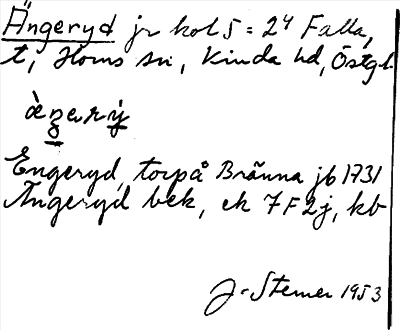 Ängeryd jr kol 5 = 24 Falla,
t, Horns sn, Kinda hd, Östgl
Engeryd, torp å Brånna jb 1731
Ängeryd bek, ek 7F2j, kb
J. Sterner 1953